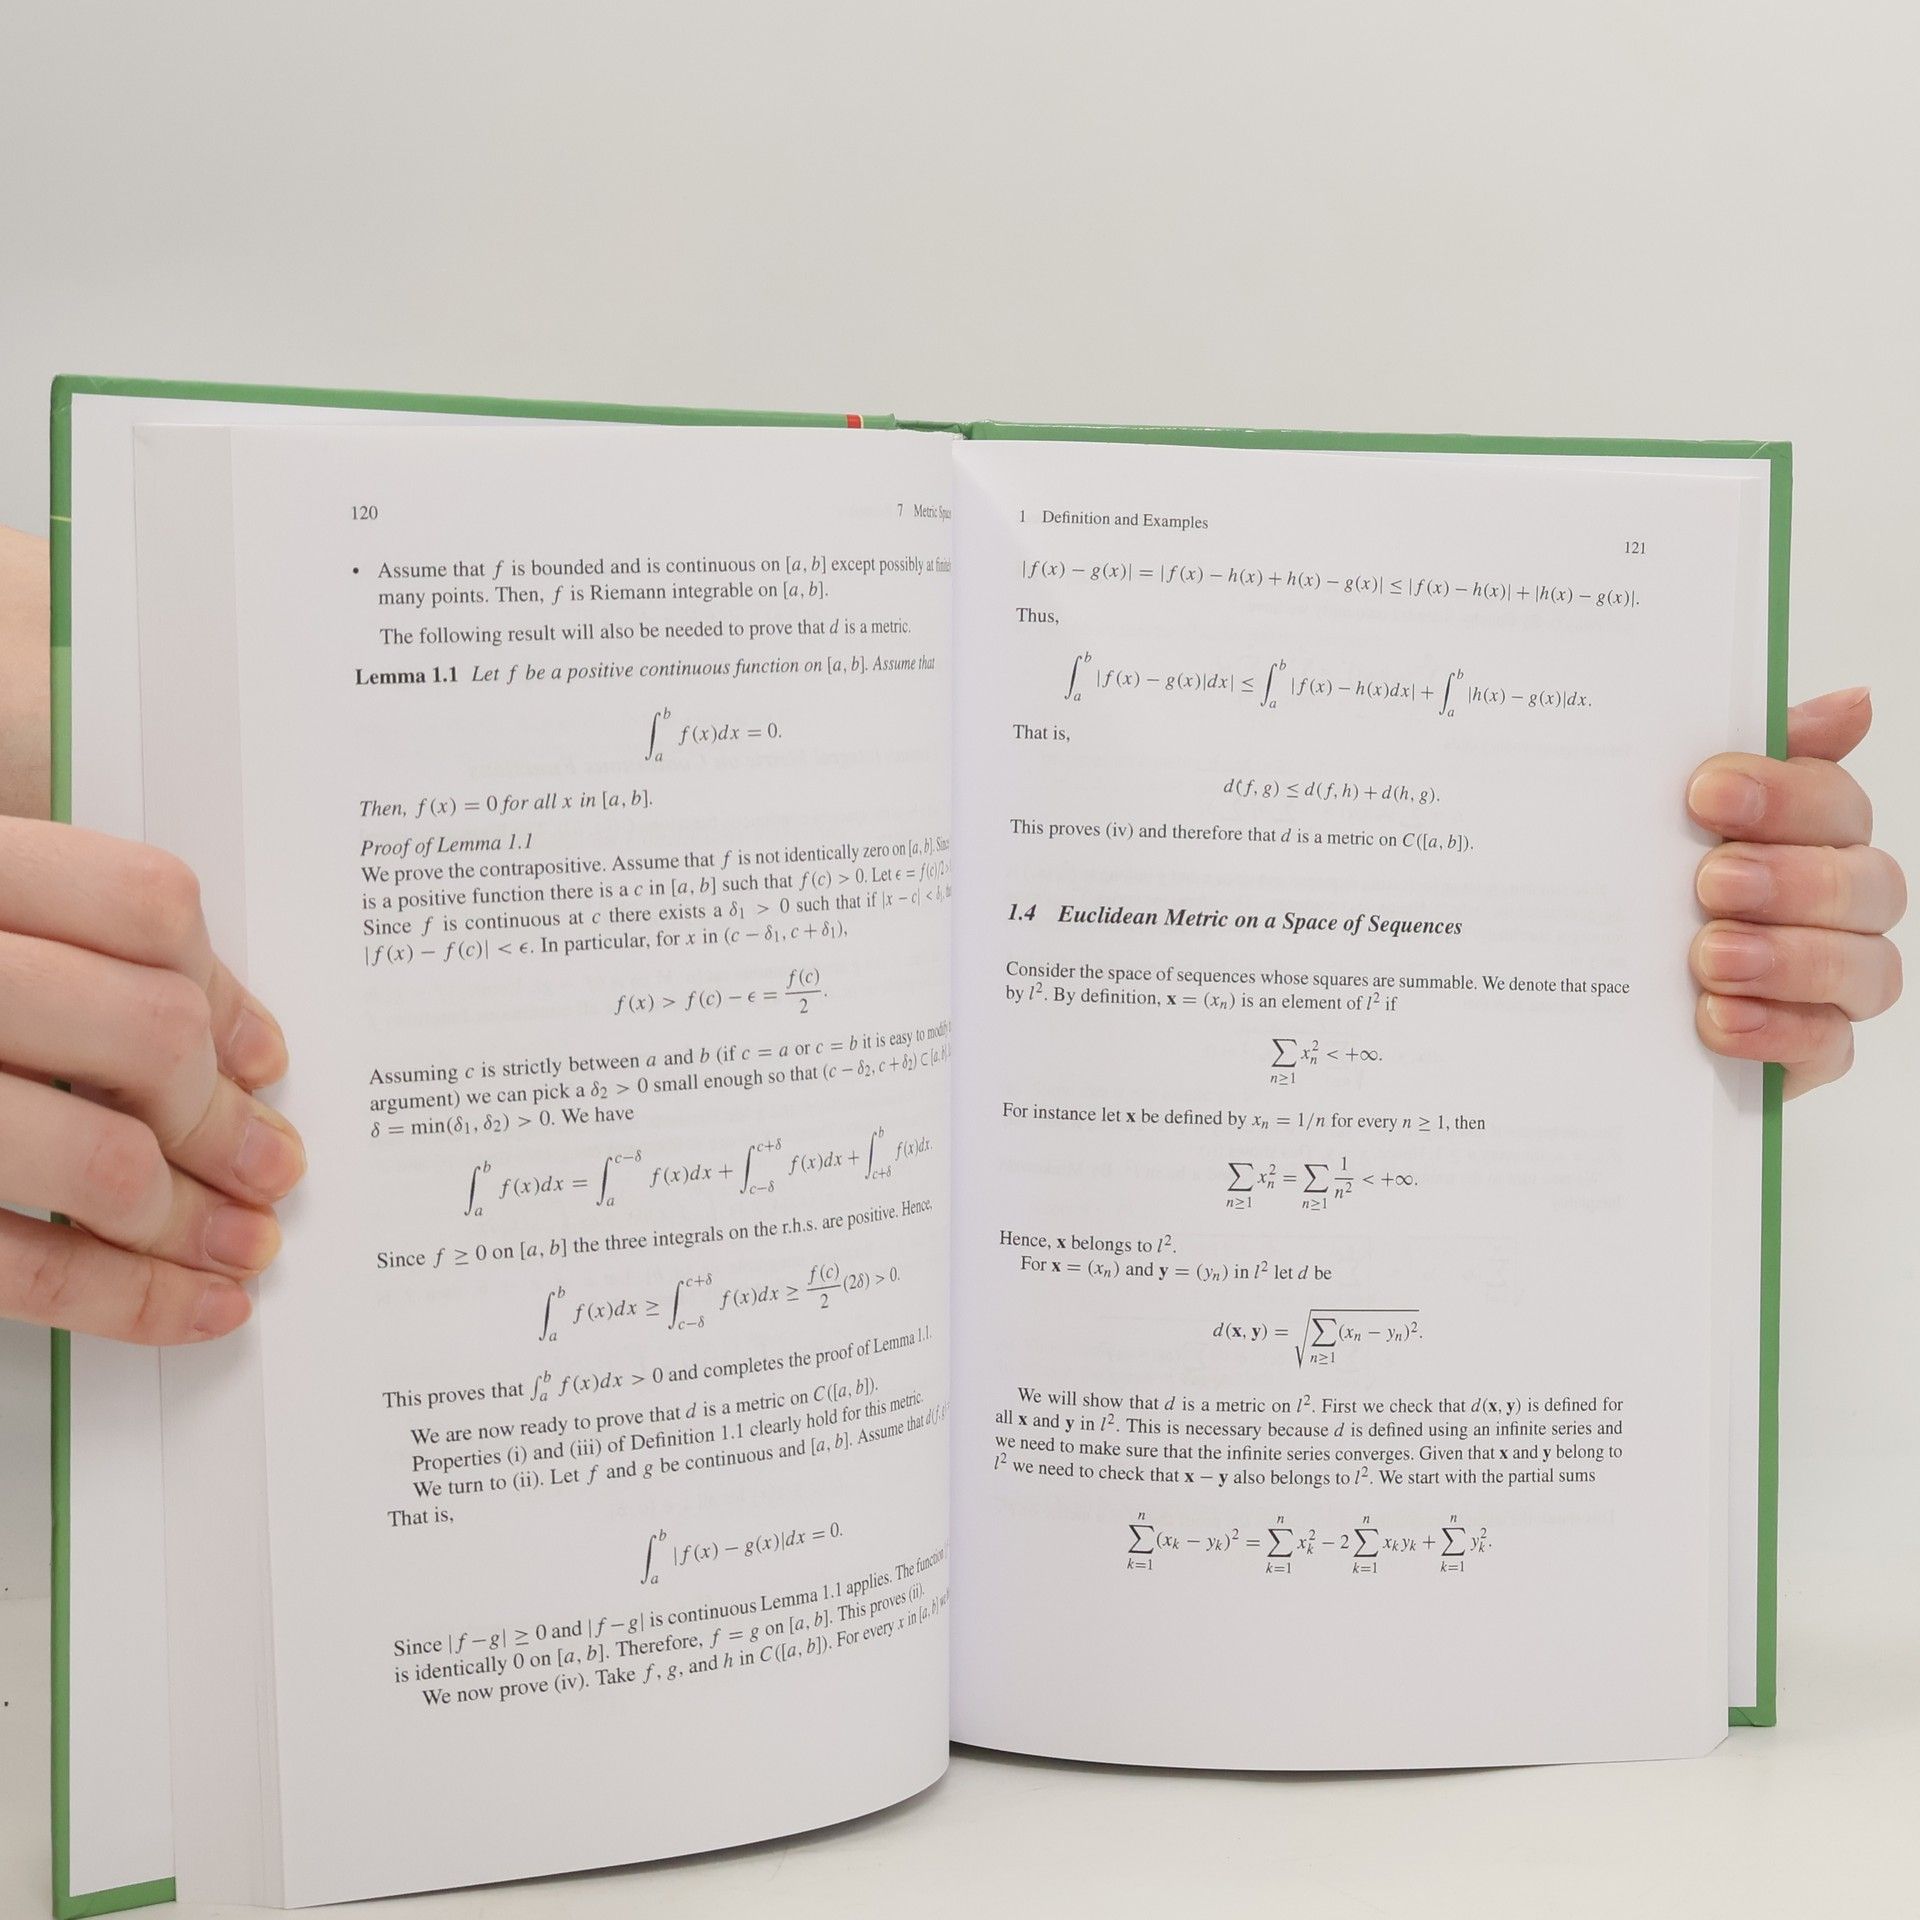 120
7 Metric
• Assume that f is bounded and is continuous on [a, b] except possibly at
many points. Then, f is Riemann integrable on [a, b].
The following result will also be needed to prove that d is a metric.
Lemma 1.1 Let f be a positive continuous function on [a, b]. Assume that
∫_a^b f(x)dx = 0.
Then, f(x) = 0 for all x in [a, b].
Proof of Lemma 1.1
We prove the contrapositive. Assume that f is not identically zero on [a, b].
is a positive function there is a c in [a, b] such that f(c) > 0. Let ϵ = f(c)/2 >
Since f is continuous at c there exists a δ₁ > 0 such that if |x − c| < δ₁,
|f(x) − f(c)| < ϵ. In particular, for x in (c − δ₁, c + δ₁),
f(x) > f(c) − ϵ = f(c)/2.
Assuming c is strictly between a and b (if c = a or c = b it is easy to modify
argument) we can pick a δ₂ > 0 small enough so that (c − δ₂, c + δ₂) ⊂ [a, b].
δ = min(δ₁, δ₂) > 0. We have
∫_a^b f(x)dx = ∫_a^{c−δ} f(x)dx + ∫_{c−δ}^{c+δ} f(x)dx + ∫_{c+δ}^b f(x)dx.
Since f ≥ 0 on [a, b] the three integrals on the r.h.s. are positive. Hence,
∫_a^b f(x)dx ≥ ∫_{c−δ}^{c+δ} f(x)dx ≥ f(c)/2 (2δ) > 0.
This proves that ∫_a^b f(x)dx > 0 and completes the proof of Lemma 1.1.
We are now ready to prove that d is a metric on C([a, b]).
Properties (i) and (iii) of Definition 1.1 clearly hold for this metric.
We turn to (ii). Let f and g be continuous and [a, b]. Assume that d(f, g)
That is,
∫_a^b |f(x) − g(x)|dx = 0.
Since |f − g| ≥ 0 and |f − g| is continuous Lemma 1.1 applies. The function
is identically 0 on [a, b]. Therefore, f = g on [a, b]. This proves (ii).
We now prove (iv). Take f, g, and h in C([a, b]). For every x in [a, b]
1 Definition and Examples
121
|f(x) − g(x)| = |f(x) − h(x) + h(x) − g(x)| ≤ |f(x) − h(x)| + |h(x) − g(x)|.
Thus,
∫_a^b |f(x) − g(x)|dx| ≤ ∫_a^b |f(x) − h(x)dx| + ∫_a^b |h(x) − g(x)|dx.
That is,
d(f, g) ≤ d(f, h) + d(h, g).
This proves (iv) and therefore that d is a metric on C([a, b]).
1.4 Euclidean Metric on a Space of Sequences
Consider the space of sequences whose squares are summable. We denote that space
by l². By definition, x = (xₙ) is an element of l² if
∑_{n≥1} xₙ² < +∞.
For instance let x be defined by xₙ = 1/n for every n ≥ 1, then
∑_{n≥1} xₙ² = ∑_{n≥1} 1/n² < +∞.
Hence, x belongs to l².
For x = (xₙ) and y = (yₙ) in l² let d be
d(x, y) = √(∑_{n≥1} (xₙ − yₙ)²).
We will show that d is a metric on l². First we check that d(x, y) is defined for
all x and y in l². This is necessary because d is defined using an infinite series and
we need to make sure that the infinite series converges. Given that x and y belong to
l² we need to check that x − y also belongs to l². We start with the partial sums
∑_{k=1}^n (xₖ − yₖ)² = ∑_{k=1}^n xₖ² − 2 ∑_{k=1}^n xₖyₖ + ∑_{k=1}^n yₖ².